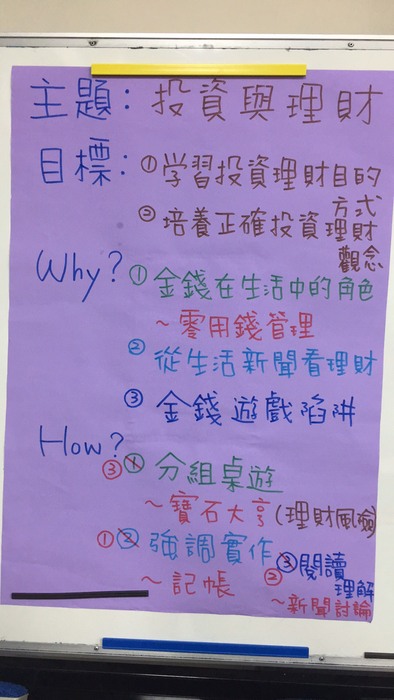 主題：投資與理財
目標：①学習投資理財目的
方式
②培養正確投資理財
觀念
Why？①金錢在生活中的角色
～零用錢管理
②從生活新聞看理財
③金錢遊戲陷阱
How？
③①分組桌遊
～寶石大亨(理財風險)
①②強調實作
③閱讀
②理解
～記帳
～新聞討論